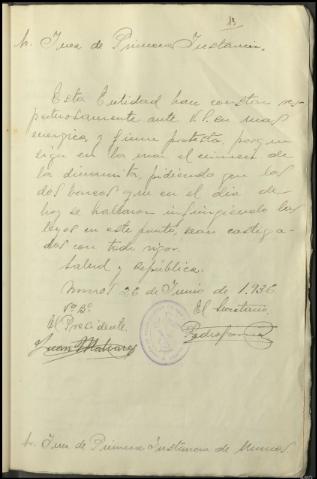 Sr. Juez de Primera Instancia.
Esta Entidad hace constar res
petuosamente ante V.S. su mas
energica y firme protesta porque
sigue en la mar el crimen de
la dinamita, pidiendo que los
dos barcos que en el dia de
hoy se hallaron infringiendo las
leyes en este punto, sean castiga-
dos con todo rigor.
Salud y República.
Muros 26 de Junio de 1.936
Vº Bº El Secretario
El Presidente
Juan
Sr. Juez de Primera Instancia de Muros